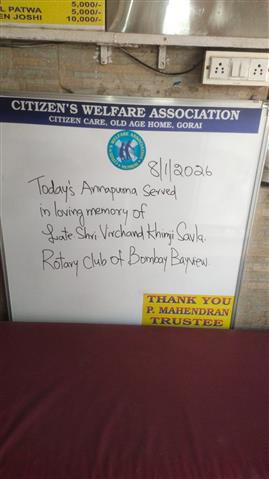 L PATWA 5,000/-
5,000/-
EN JOSHI 10,000/-
CITIZEN'S WELFARE ASSOCIATION
CITIZEN CARE, OLD AGE HOME, GORAI
8/1/2026
Today's Annapurna Served
in loving memory of
Late Shri Virchand Khimji Savla.
Rotary Club of Bombay Bayview
THANK YOU
P. MAHENDRAN
TRUSTEE